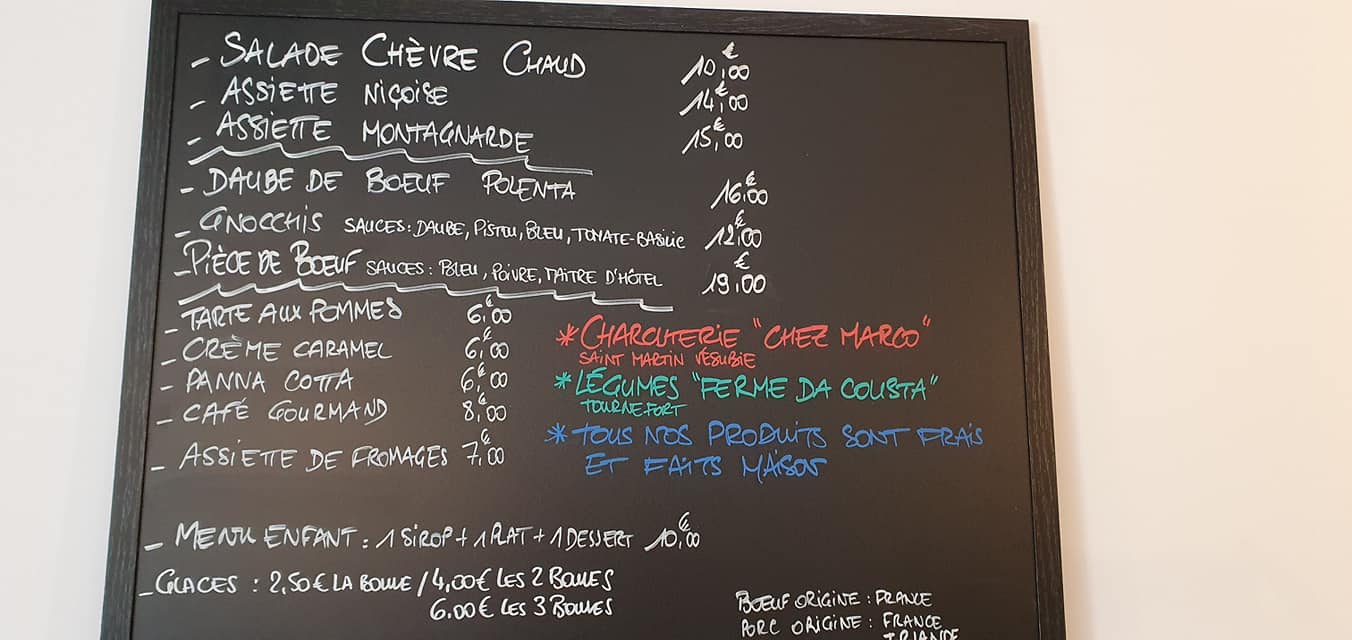 - SALADE CHÈVRE CHAUD 10,00€
- ASSIETTE NIÇOISE 14,00€
- ASSIETTE MONTAGNARDE 15,00€
- DAUBE DE BOEUF POLENTA 16,00€
- GNOCCHIS SAUCES: DAUBE, PISTOU, BLEU, TOMATE-BASILIC 12,00€
- PIÈCE DE BOEUF SAUCES: BLEU, POIVRE, MAITRE D'HÔTEL 19,00€
- TARTE AUX POMMES 6,00€
- CRÈME CARAMEL 6,00€
- PANNA COTTA 6,00€
- CAFÉ GOURMAND 8,00€
- ASSIETTE DE FROMAGES 7,00€
* CHARCUTERIE "CHEZ MARCO"
SAINT MARTIN VÉSUBIE
* LÉGUMES "FERME DA COUSTA"
TOURNEFORT
* TOUS NOS PRODUITS SONT FRAIS
ET FAITS MAISON
- MENU ENFANT : 1 SIROP + 1 PLAT + 1 DESSERT 10,00€
- GLACES : 2,50€ LA BOULE / 4,00€ LES 2 BOULES
6.00€ LES 3 BOULES
BOEUF ORIGINE : FRANCE
PORC ORIGINE : FRANCE
IRLANDE